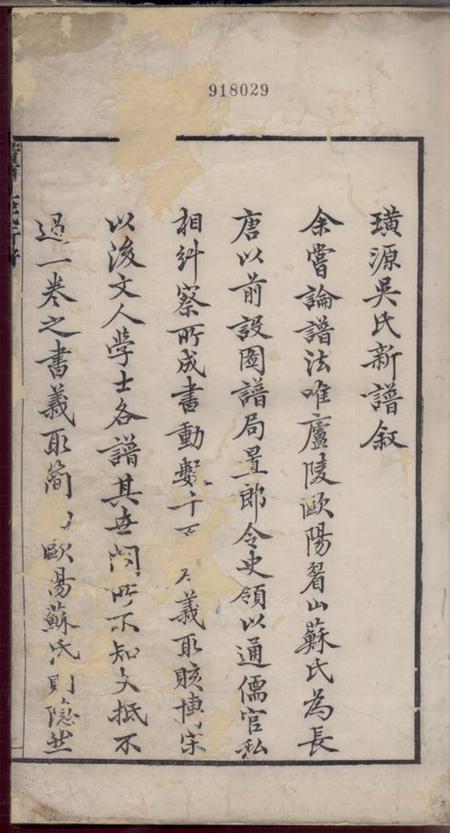 918029
璜源吳氏新譜叙
余嘗論譜法唯廬陵歐陽眉山蘇氏為長
唐以前設圖譜局置郎令史領以通儒官私
相糾察所成書動數千 義取賅博宋
以後文人學士各譜其世闕所不知大抵不
過一卷之書義取簡 歐陽蘇氏則隱然